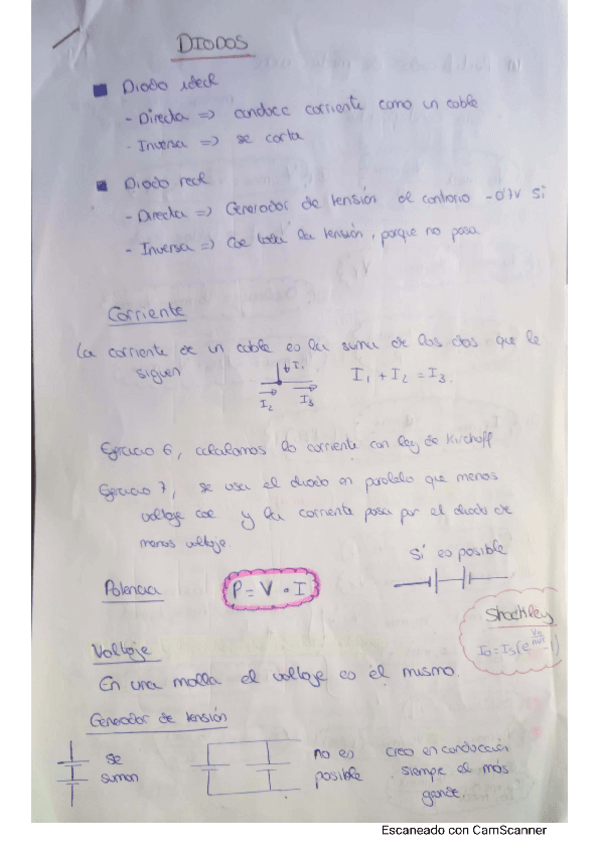 DIODOS
Diodo ideal
- Directa => conduce corriente como un cable
- Inversa => se corta
Diodo real
- Directa => Generador de tensión al contrario -0'7V Si
- Inversa => Cae toda la tensión, porque no pasa
Corriente
La corriente de un cable es la suma de los dos que le
siguen
I1
I2
I3
I1 + I2 = I3.
Ejercicio 6, calculamos la corriente con ley de Kirchoff
Ejercicio 7, se usa el diodo en paralelo que menos
voltaje cae y la corriente pasa por el diodo de
menos voltaje.
Sí es posible
Potencia
P = V · I
Shockley
Voltaje
En una malla el voltaje es el mismo.
Generador de tensión
se
suman
no es
posible
creo en conducción
siempre el más
grande.
Escaneado con CamScanner